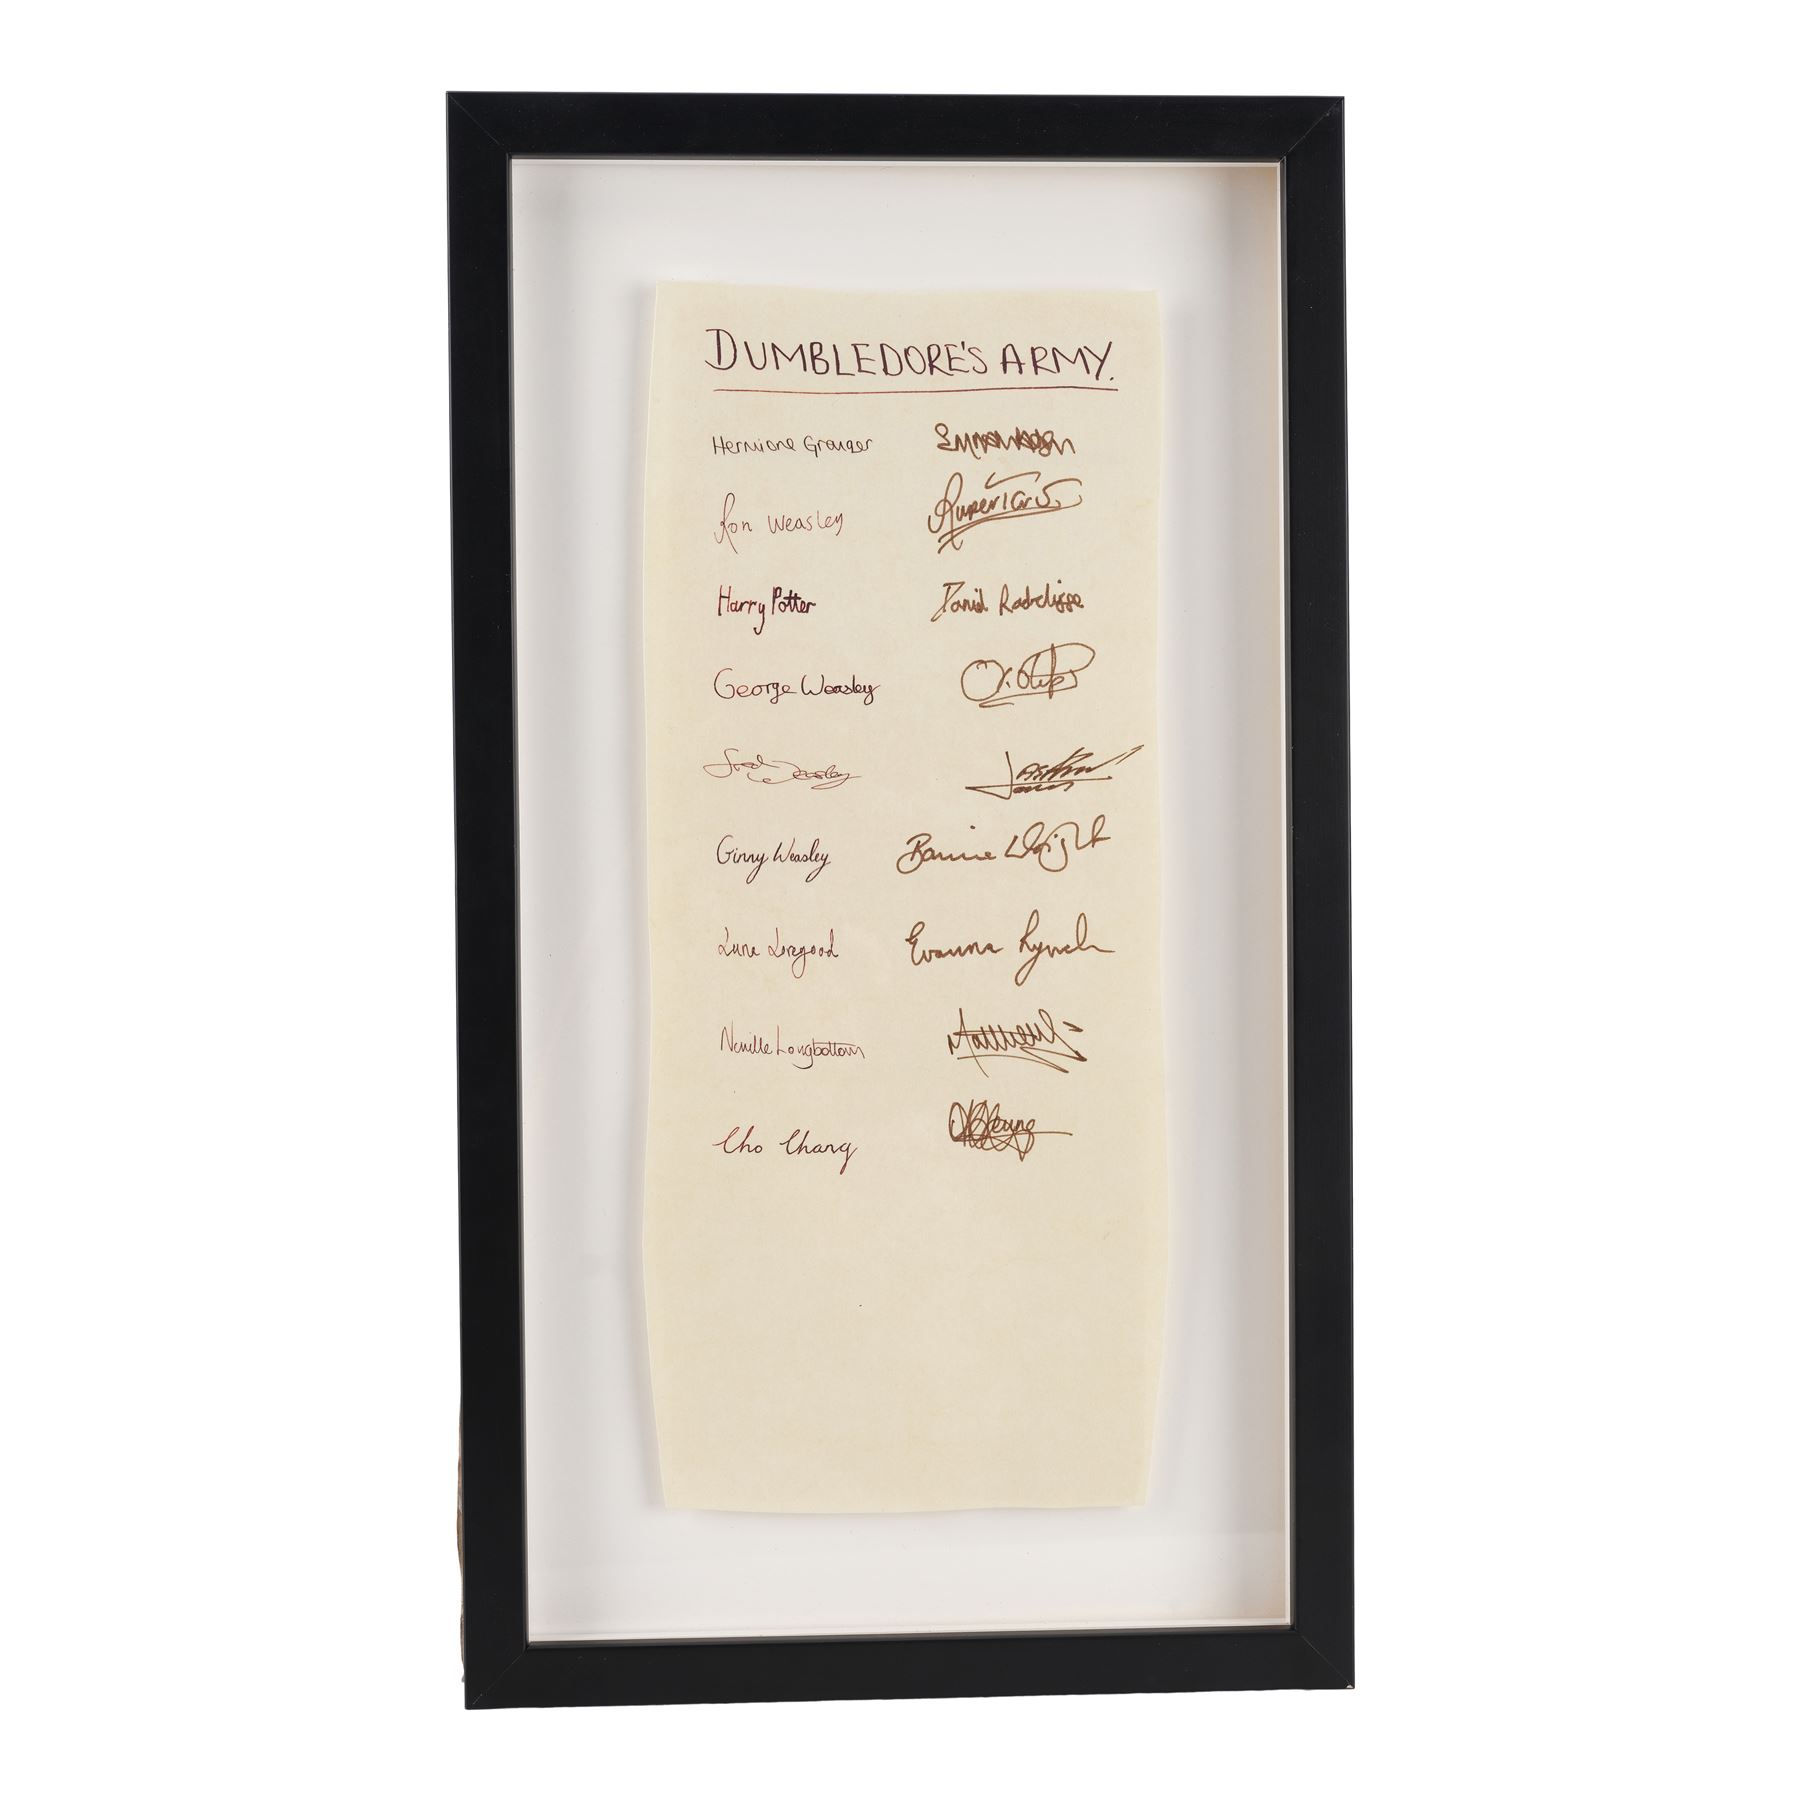 DUMBLEDORE'S ARMY.
Hermione Granger Emma Watson
Ron Weasley Rupert Grint
Harry Potter Daniel Radcliffe
George Weasley O. Phelps
Fred Weasley James
Ginny Weasley Bonnie Wright
Luna Lovegood Evanna Lynch
Neville Longbottom Matthew
Cho Chang